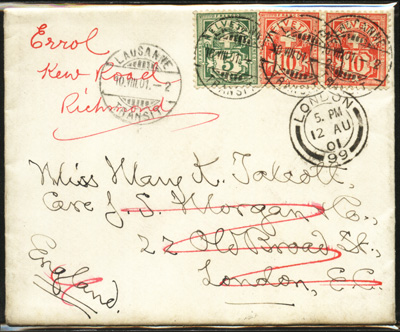 Errol
Kew Road
Richmond
LAUSANNE
10.VIII.01.–2
TRANSIT
HELVETIA
5
10
10
LAUSANNE
TRANSIT
LONDON
5. PM
12 AU
01
99
Miss Mary K. Talcott,
Care J. S. Morgan & Co.,
22 Old Broad St.,
London, E.C.
England.